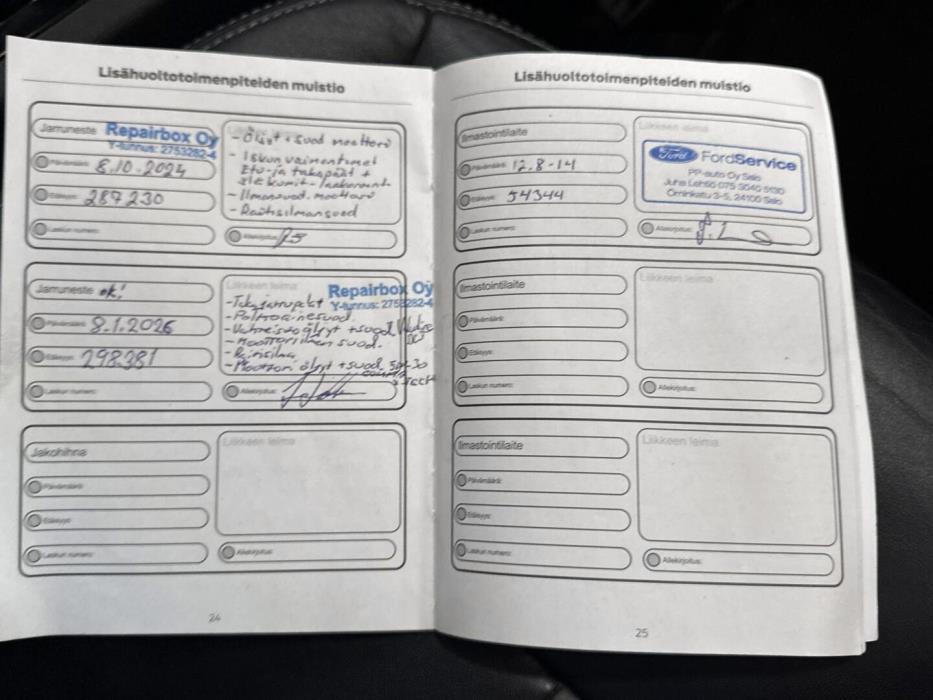 Lisähuoltotoimenpiteiden muistio
Jarruneste
Repairbox Oy
Y-tunnus: 2753282-4
Päivämäärä: 8.10.2024
287230
Laskun numero:
- Öljyt + suod moottori
- Iskunvaimentimet
Etu-ja takapäät +
- Ilmansuod. moottori
- Raitisilmansuod
Allekirjoitus:
Jarruneste ok!
Päivämäärä: 8.1.2026
298381
Laskun numero:
Liikkeen leima
Repairbox Oy
Y-tunnus: 2753282-4
- Takajarrupalat
- Polttoainesuod.
- Vaihteistoöljyt + suod
- Moottorilman suod.
- Raitisilma
- Moottori öljyt + suod 5W-30
Allekirjoitus:
Jakohihna
Päivämäärä:
Laskun numero:
Liikkeen leima
Allekirjoitus:
24
Lisähuoltotoimenpiteiden muistio
Ilmastointilaite
Päivämäärä: 12.8-14
54344
Laskun numero:
Liikkeen leima
Ford FordService
PP-auto Oy Salo
Juha Lehtiö 075 3040 5130
Örninkatu 3-5, 24100 Salo
Allekirjoitus:
Ilmastointilaite
Päivämäärä:
Laskun numero:
Liikkeen leima
Allekirjoitus:
Ilmastointilaite
Päivämäärä:
Laskun numero:
Liikkeen leima
Allekirjoitus:
25